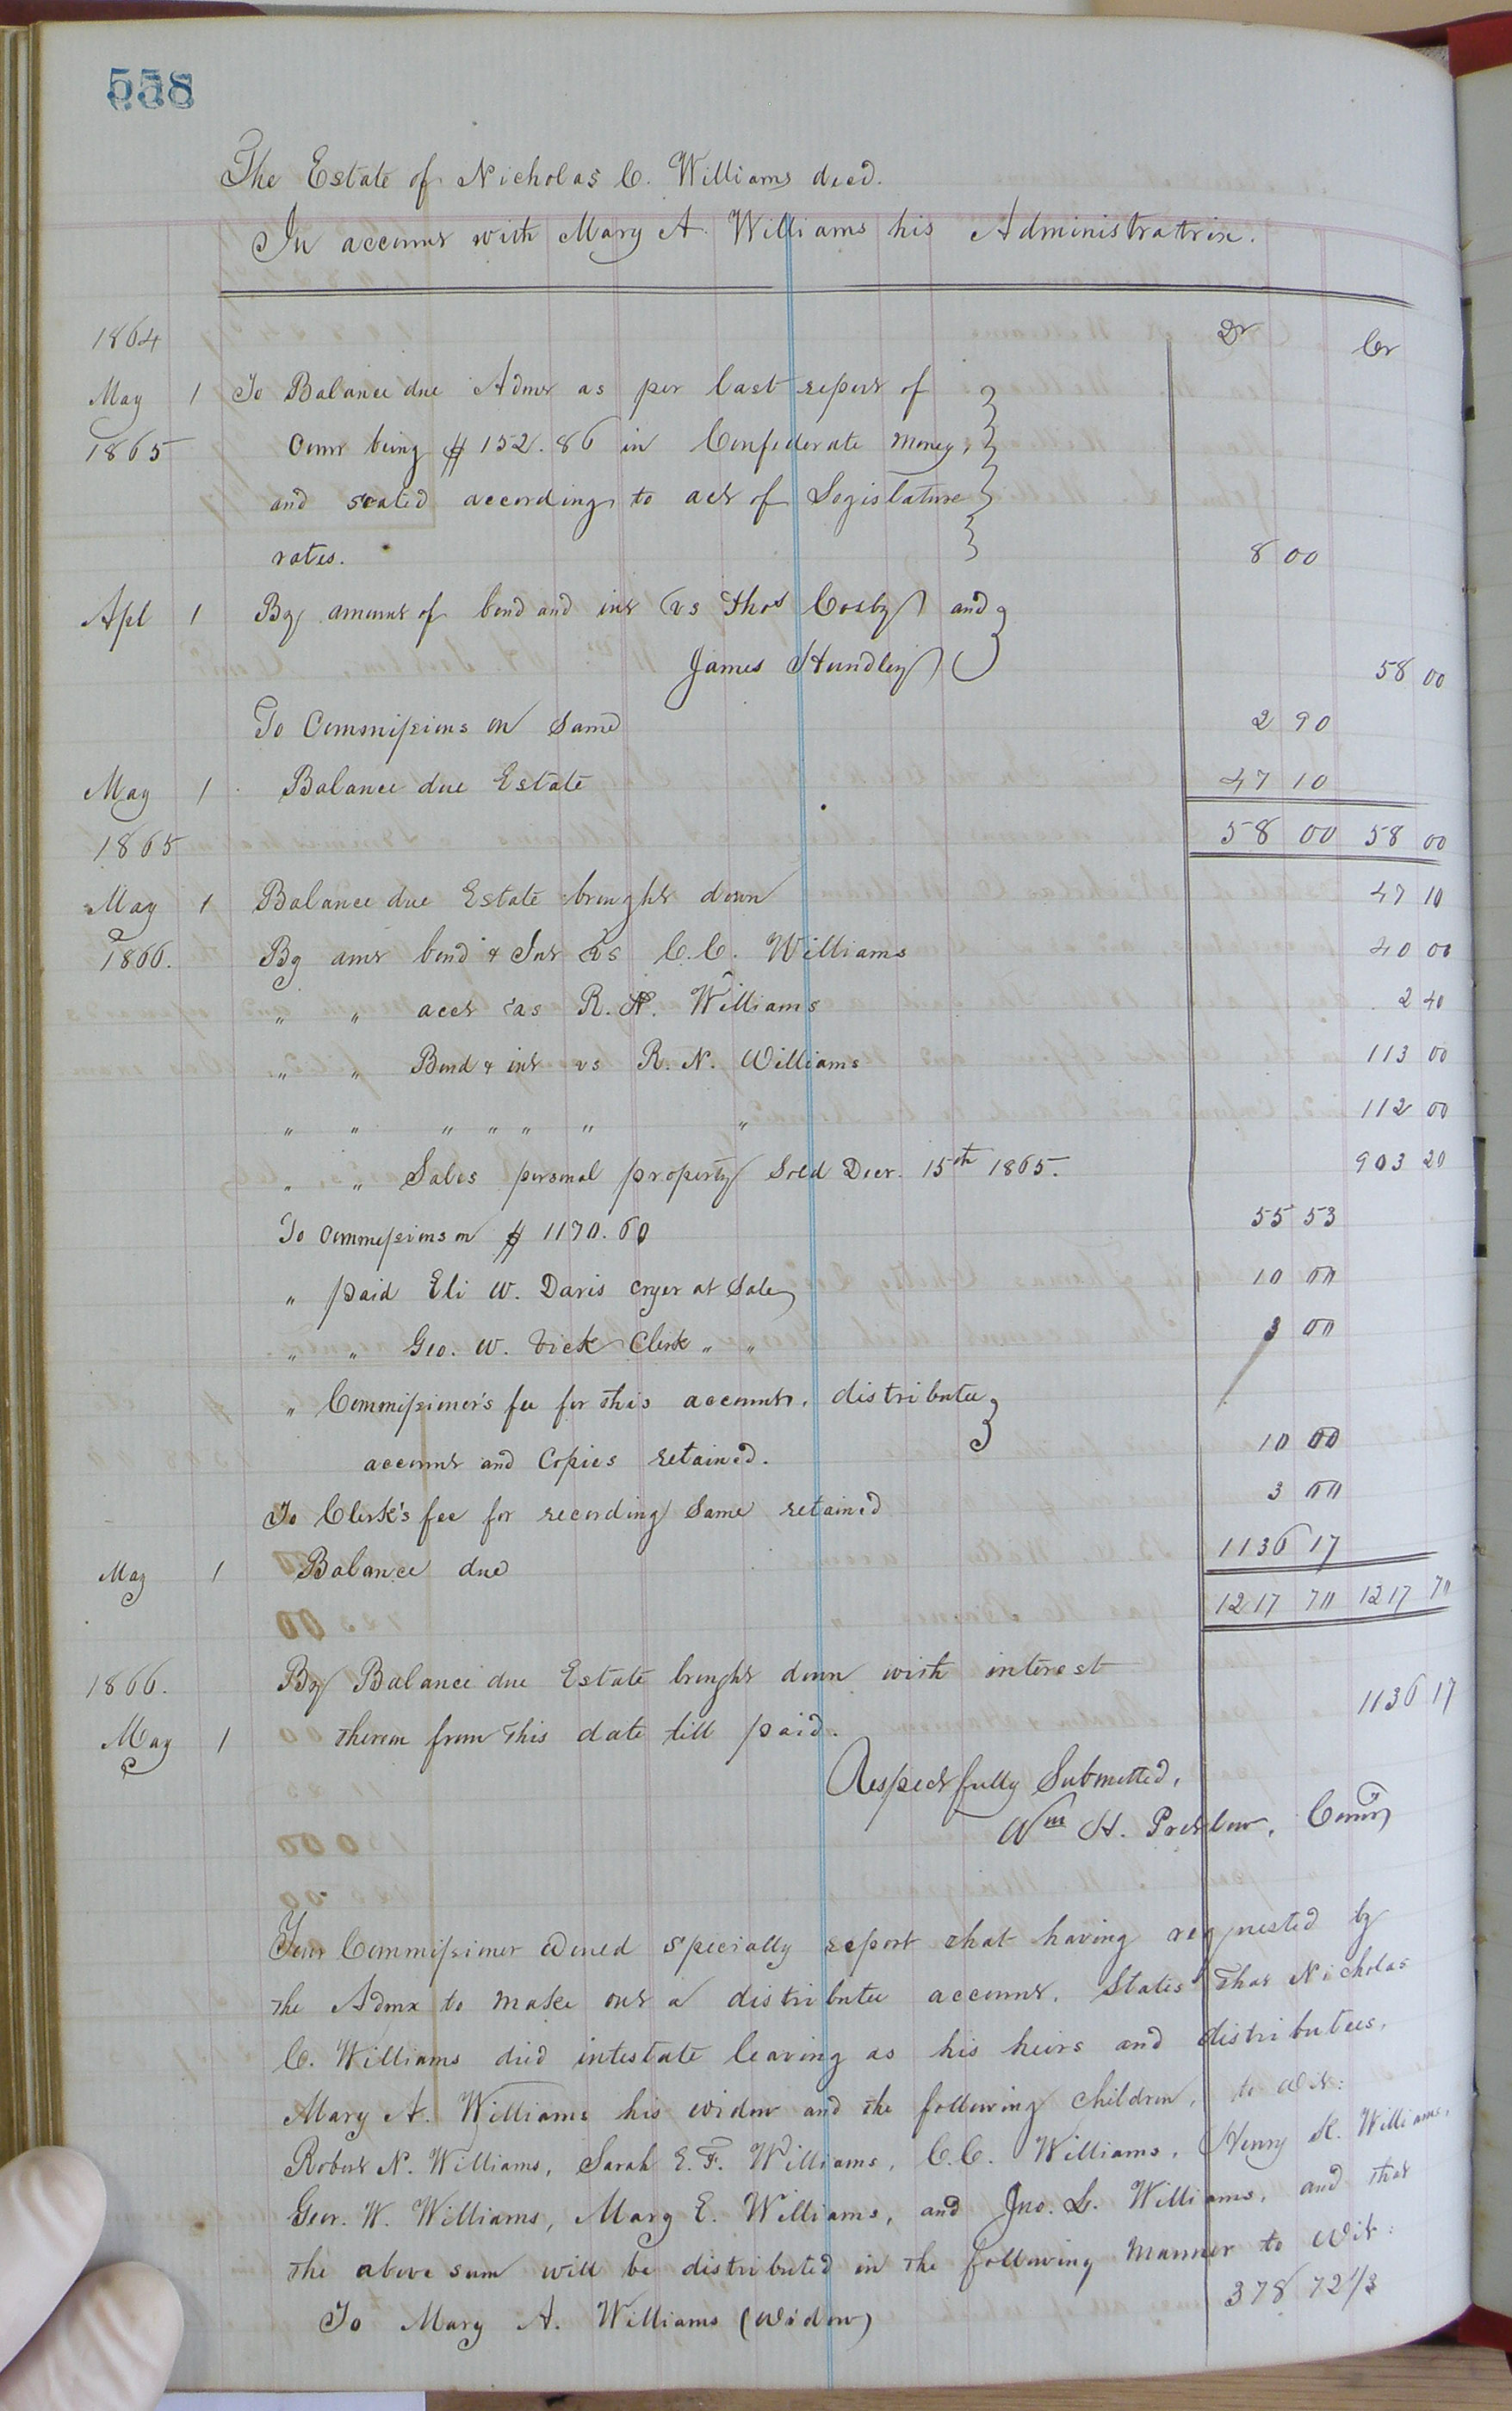 558
The Estate of Nicholas C. Williams decd.
In account with Mary A. Williams his Administratrix.
1864 Dr Cr
May 1 To Balance due Admx as per last report of
1865 Comr being $152.86 in Confederate money,
and scaled according to act of Legislature
rates. 8 00
Apl 1 By amount of bond and int vs Thos Cosby and
James Hundley 58 00
To Commissions on Same 2 90
May 1 Balance due Estate 47 10
1865 58 00 58 00
May 1 Balance due Estate brought down 47 10
1866. By amt bond & Int vs C.C. Williams 40 00
" " acct vs R. N. Williams 2 40
" " Bond & int vs R. N. Williams 113 00
" " " " " " " 112 00
" " Sales personal property Sold Decr. 15th 1865. 903 20
To Commissions on $1170.60 55 53
" paid Eli W. Davis cryer at Sale 10 00
" " Geo. W. Vick Clerk " " 3 00
" Commissioner's fee for this account, distributee
account and Copies retained. 10 00
To Clerk's fee for recording Same retained 3 00
May 1 Balance due 1136 17
1217 70 1217 70
1866. By Balance due Estate brought down with interest
May 1 thereon from this date till paid. 1136 17
Respectfully Submitted,
Wm H. Pretlow, Comr
Your Commissioner would specially report that having requested by
the Admx to make out a distributee account. States that Nicholas
C. Williams died intestate leaving as his heirs and distributees,
Mary A. Williams his widow and the following children, to wit:
Robert N. Williams, Sarah E. F. Williams, C.C. Williams, Henry K. Williams,
Geor. W. Williams, Mary E. Williams, and Jno. L. Williams, and that
the above sum will be distributed in the following manner to wit:
To Mary A. Williams (widow) 378 72 1/3